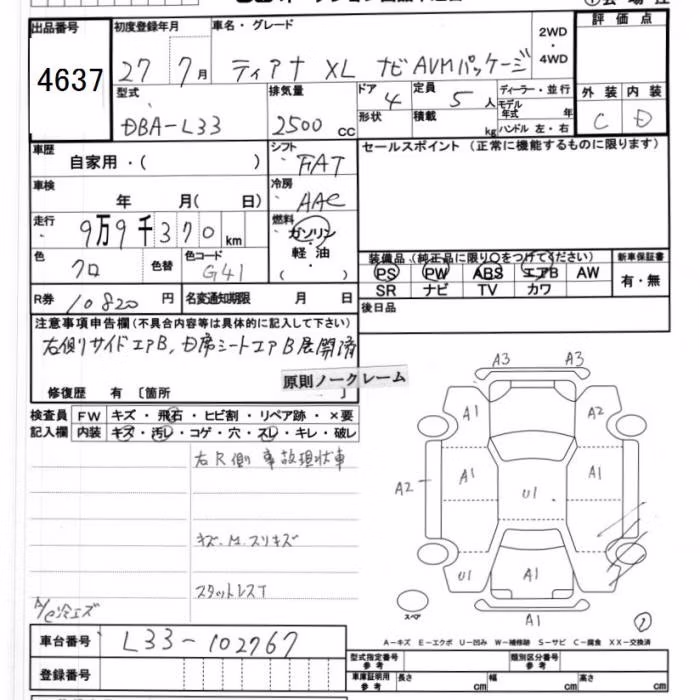 出品番号
4637
初度登録年月
27 7月
車名・グレード
ティアナ XL ナビAVMパッケージ
2WD
・
4WD
評価点
外装 内装
C D
型式
DBA-L33
排気量
2500 cc
ドア
4
定員
5 人
形状
積載
kg
ディーラー・並行
モデル年式 年
ハンドル 左・右
車歴
自家用・( )
シフト
FAT
セールスポイント (正常に機能するものに限ります)
車検
年 月( 日)
冷房
AAC
走行
9万9千370km
燃料
ガソリン
・
軽油
( )
色
クロ
色替
色コード
G41
装備品 (純正品に限り○をつけてください)
PS PW ABS エアB AW
SR ナビ TV カワ
新車保証書
有・無
R券
10820円
名変通知期限 月 日
後日品
注意事項申告欄 (不具合内容等は具体的に記入して下さい)
右側リサイドエアB, D席シートエアB展開済
原則ノークレーム
修復歴 有 〔箇所 〕
検査員記入欄
FW キズ・飛石・ヒビ割・リペア跡・×要
内装 キズ・汚レ・コゲ・穴・スレ・キレ・破レ
右R側 事故現状車
キズ. M. スリキズ
スタットレスT
A/C冷エズ
A3 A3
A1 A2
A1 A1
A2
U1
U1 A1
A1
スペア
1
A-キズ E-エクボ U-凹み W-補修跡 S-サビ C-腐食 XX-交換済
車台番号
L33-102767
登録番号
型式指定番号
参考
類別区分番号
参考
車庫証明用
参考
長さ cm 幅 cm 高さ cm